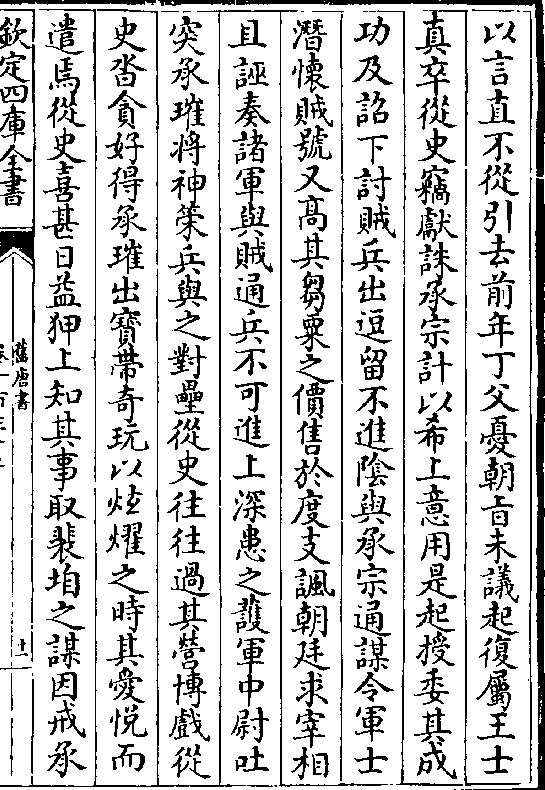 以言直不從引去前年丁父憂朝㫖未議起復屬王士
真卒從史竊獻誅承宗計以希上意用是起授委其成
功及詔下討賊兵出逗留不進隂與承宗通謀令軍士
潛懷賊號又髙其芻粟之價售於度支諷朝廷求宰相
且誣奏諸軍與賊通兵不可進上深患之護軍中尉吐
突承璀將神䇿兵與之對壘從史往往過其營博戲從
史沓貪好得承璀出寳帶奇玩以炫燿之時其愛悅而
遣焉從史喜甚日益狎上知其事取裴垍之謀因戒承
欽定四庫全書
舊唐書
十一